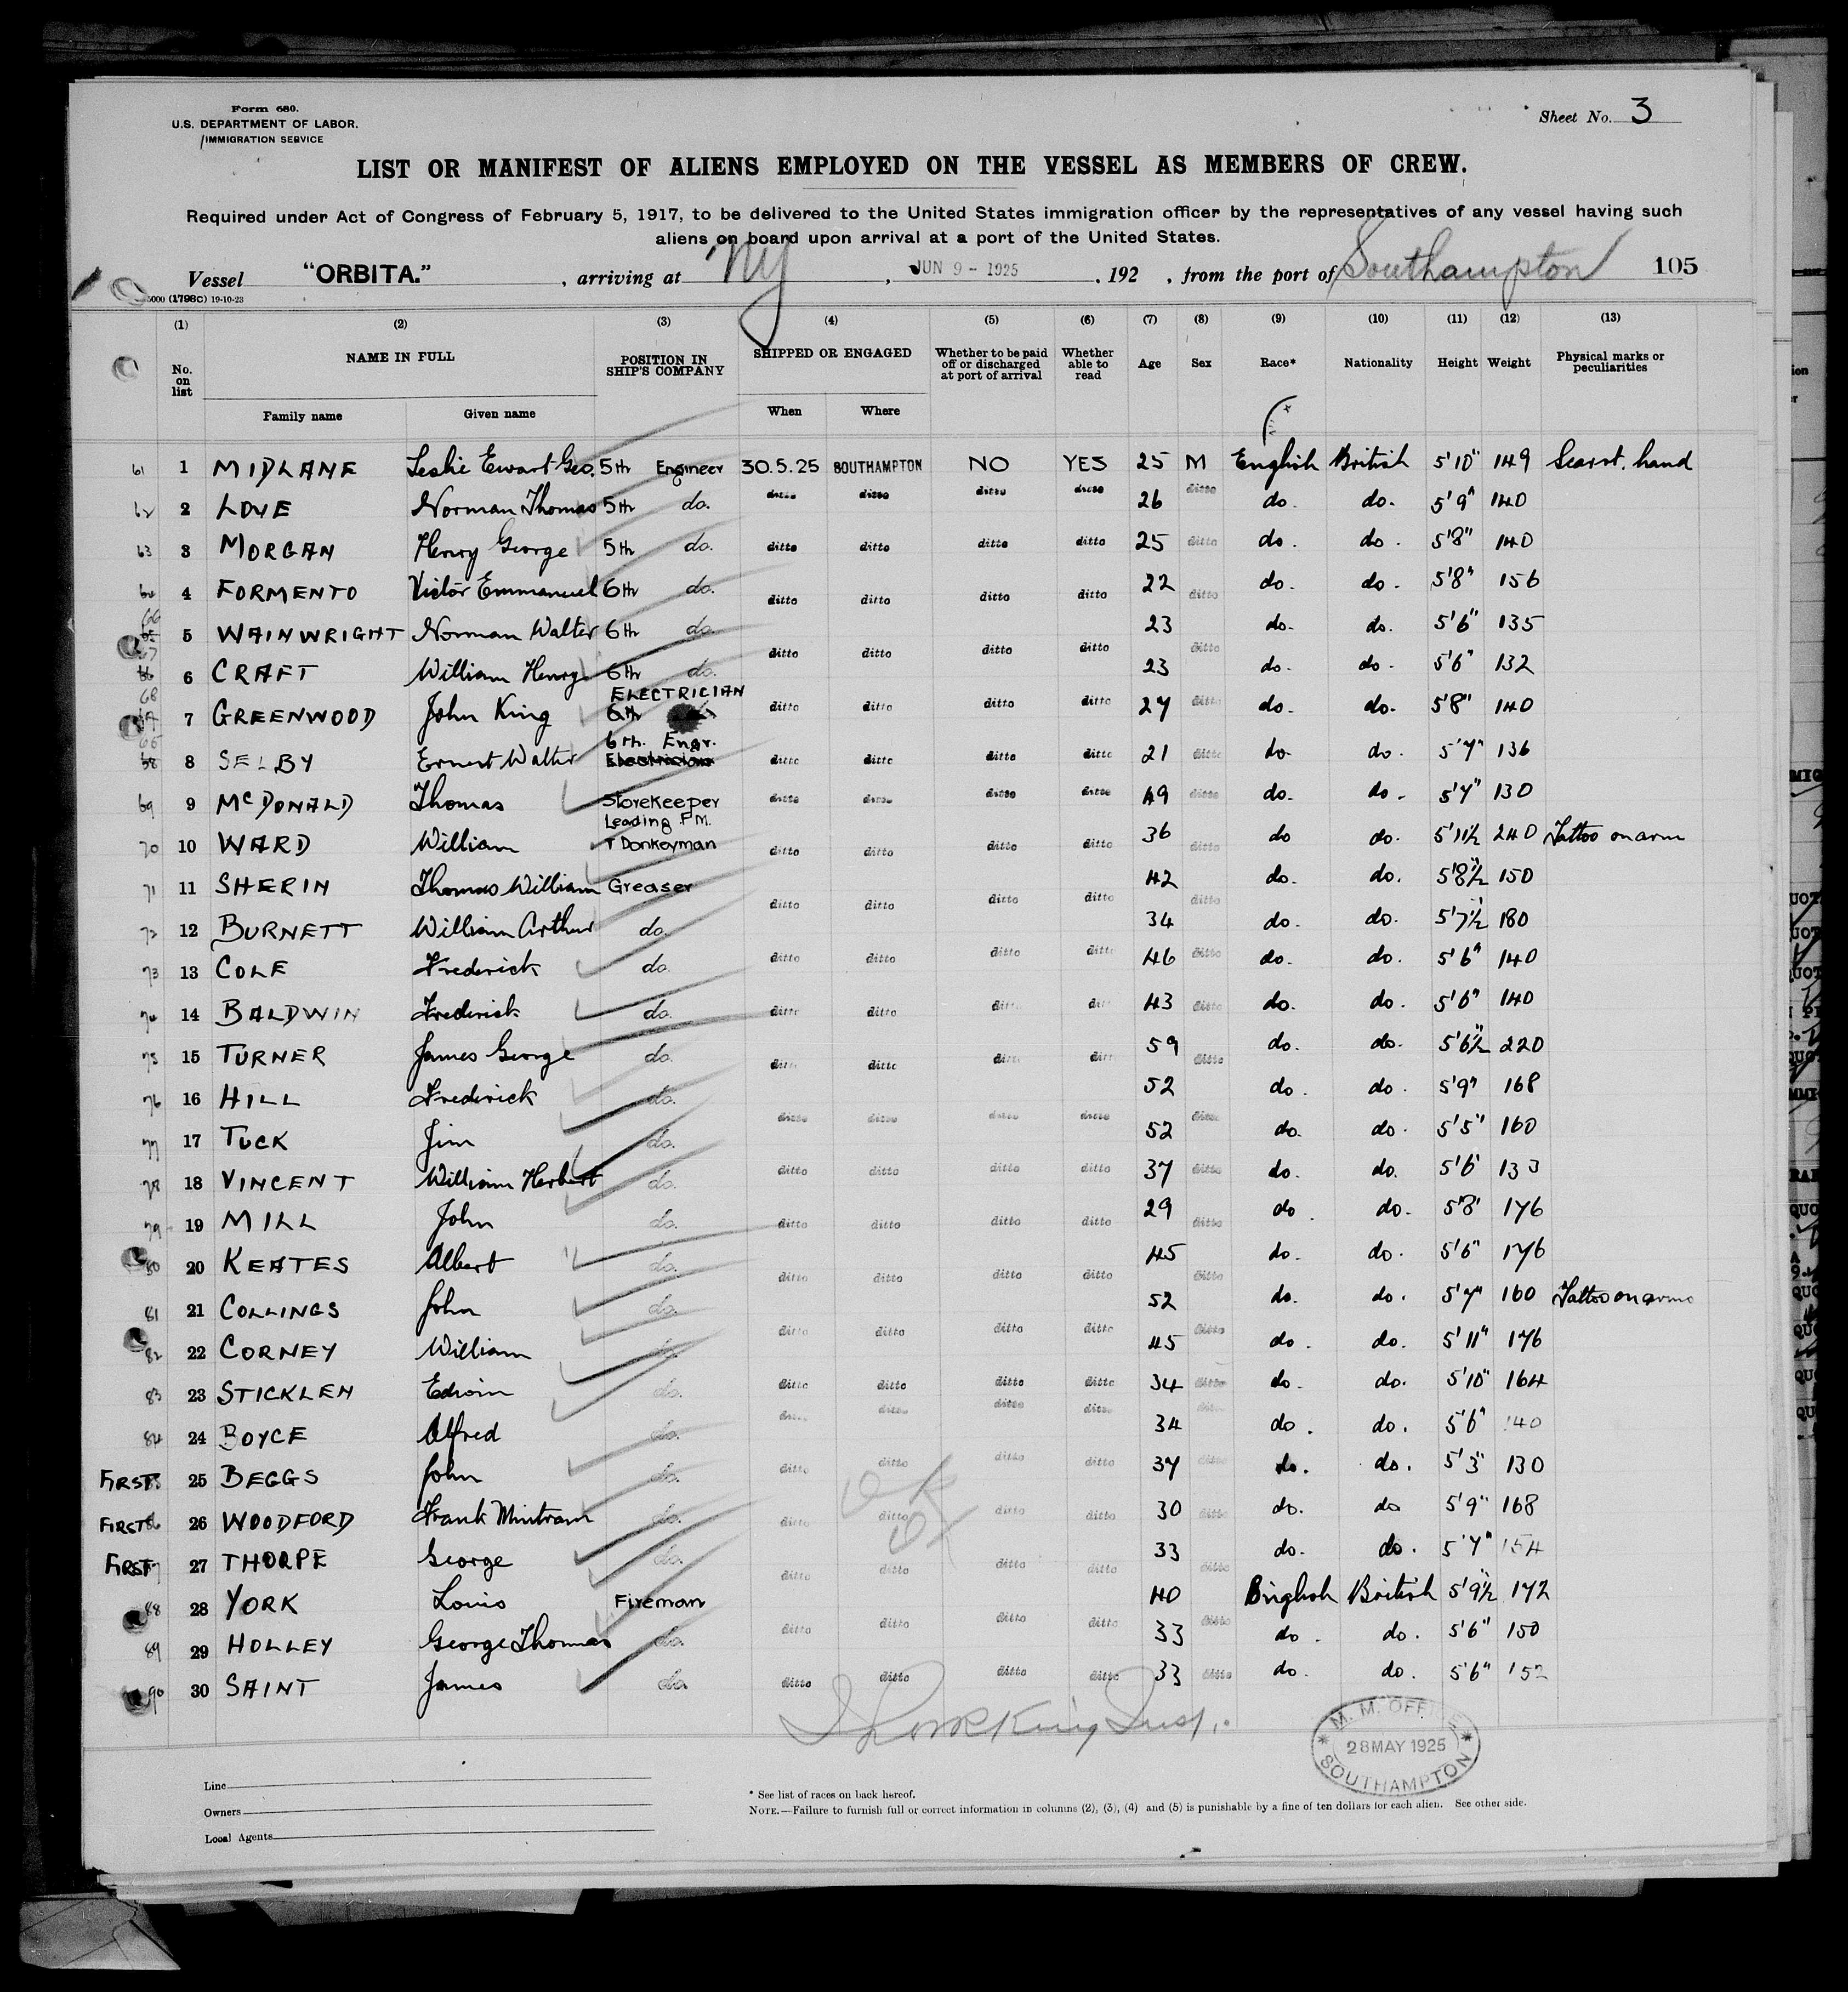 Form 680.
U.S. DEPARTMENT OF LABOR.
IMMIGRATION SERVICE
Sheet No. 3
LIST OR MANIFEST OF ALIENS EMPLOYED ON THE VESSEL AS MEMBERS OF CREW.
Required under Act of Congress of February 5, 1917, to be delivered to the United States immigration officer by the representatives of any vessel having such
aliens on board upon arrival at a port of the United States.
Vessel "ORBITA." , arriving at NY , JUN 9 - 1925 , 192 , from the port of Southampton 105
5000 (1798C) 19-10-23
(1) (2) (3) (4) (5) (6) (7) (8) (9) (10) (11) (12) (13)
No. on list NAME IN FULL POSITION IN SHIP'S COMPANY SHIPPED OR ENGAGED Whether to be paid off or discharged at port of arrival Whether able to read Age Sex Race* Nationality Height Weight Physical marks or peculiarities
Family name Given name When Where
61 1 MIDLANE Leslie Ewart Geo. 5th Engineer 30.5.25 SOUTHAMPTON NO YES 25 M English British 5'10" 149 Scar st. hand
62 2 LOVE Norman Thomas 5th do. ditto ditto ditto ditto 26 ditto do. do. 5'9" 140
63 3 MORGAN Henry George 5th do. ditto ditto ditto ditto 25 ditto do. do. 5'8" 140
64 4 FORMENTO Victor Emmanuel 6th do. ditto ditto ditto ditto 22 ditto do. do. 5'8" 156
66 5 WAINWRIGHT Norman Walter 6th do. ditto ditto ditto ditto 23 ditto do. do. 5'6" 135
67 6 CRAFT William Henry 6th do. 23 do. do. 5'6" 132
68 7 GREENWOOD John King 6th ELECTRICIAN ditto ditto ditto ditto 27 ditto do. do. 5'8" 140
65 8 SELBY Ernest Walter 6th. Engr. Electrician ditto ditto ditto ditto 21 ditto do. do. 5'7" 136
69 9 McDONALD Thomas Storekeeper ditto ditto ditto ditto 49 ditto do. do. 5'7" 130
70 10 WARD William Leading F.M. & Donkeyman ditto ditto ditto ditto 36 ditto do do. 5'11½ 240 Tattoo on arm
71 11 SHERIN Thomas William Greaser ditto ditto ditto ditto 42 ditto do. do. 5'8½" 150
72 12 BURNETT William Arthur do. 34 do. do. 5'7½" 180
73 13 COLE Frederick do. ditto ditto ditto ditto 46 ditto do. do. 5'6" 140
74 14 BALDWIN Frederick do. ditto ditto ditto ditto 43 ditto do. do. 5'6" 140
75 15 TURNER James George do. ditto ditto ditto ditto 59 ditto do. do. 5'6½" 220
76 16 HILL Frederick do. 52 do. do. 5'9" 168
77 17 TUCK Jim do. ditto ditto ditto ditto 52 ditto do. do. 5'5" 160
78 18 VINCENT William Herbert do. ditto ditto ditto ditto 37 ditto do. do. 5'6 133
79 19 MILL John do. ditto ditto ditto ditto 29 ditto do do. 5'8' 176
80 20 KEATES Albert do. ditto ditto ditto ditto 45 ditto do. do. 5'6" 176
81 21 COLLINGS John do. 52 do. do. 5'7" 160 Tattoo on arms
82 22 CORNEY William do. ditto ditto ditto ditto 45 ditto do. do. 5'11" 176
83 23 STICKLEN Edwin do. ditto ditto ditto ditto 34 ditto do. do. 5'10" 164
84 24 BOYCE Alfred do. ditto ditto ditto ditto 34 ditto do. do. 5'6" 140
FIRST 85 25 BEGGS John do. ditto ditto ditto ditto 37 ditto do. do. 5'3" 130
FIRST 86 26 WOODFORD Frank Mintram do. ditto ditto ditto ditto 30 ditto do. do 5'9" 168
FIRST 87 27 THORPE George do. ditto ditto ditto ditto 33 ditto do. do. 5'7" 154
88 28 YORK Louis Fireman 40 English British 5'9½" 172
89 29 HOLLEY George Thomas do. ditto ditto ditto ditto 33 ditto do. do. 5'6" 150
90 30 SAINT James do. ditto ditto ditto ditto 33 ditto do. do. 5'6" 152
King Insp.
M. M. OFFICE
28 MAY 1925
SOUTHAMPTON
Line
Owners
Local Agents
* See list of races on back hereof.
NOTE.—Failure to furnish full or correct information in columns (2), (3), (4) and (5) is punishable by a fine of ten dollars for each alien. See other side.